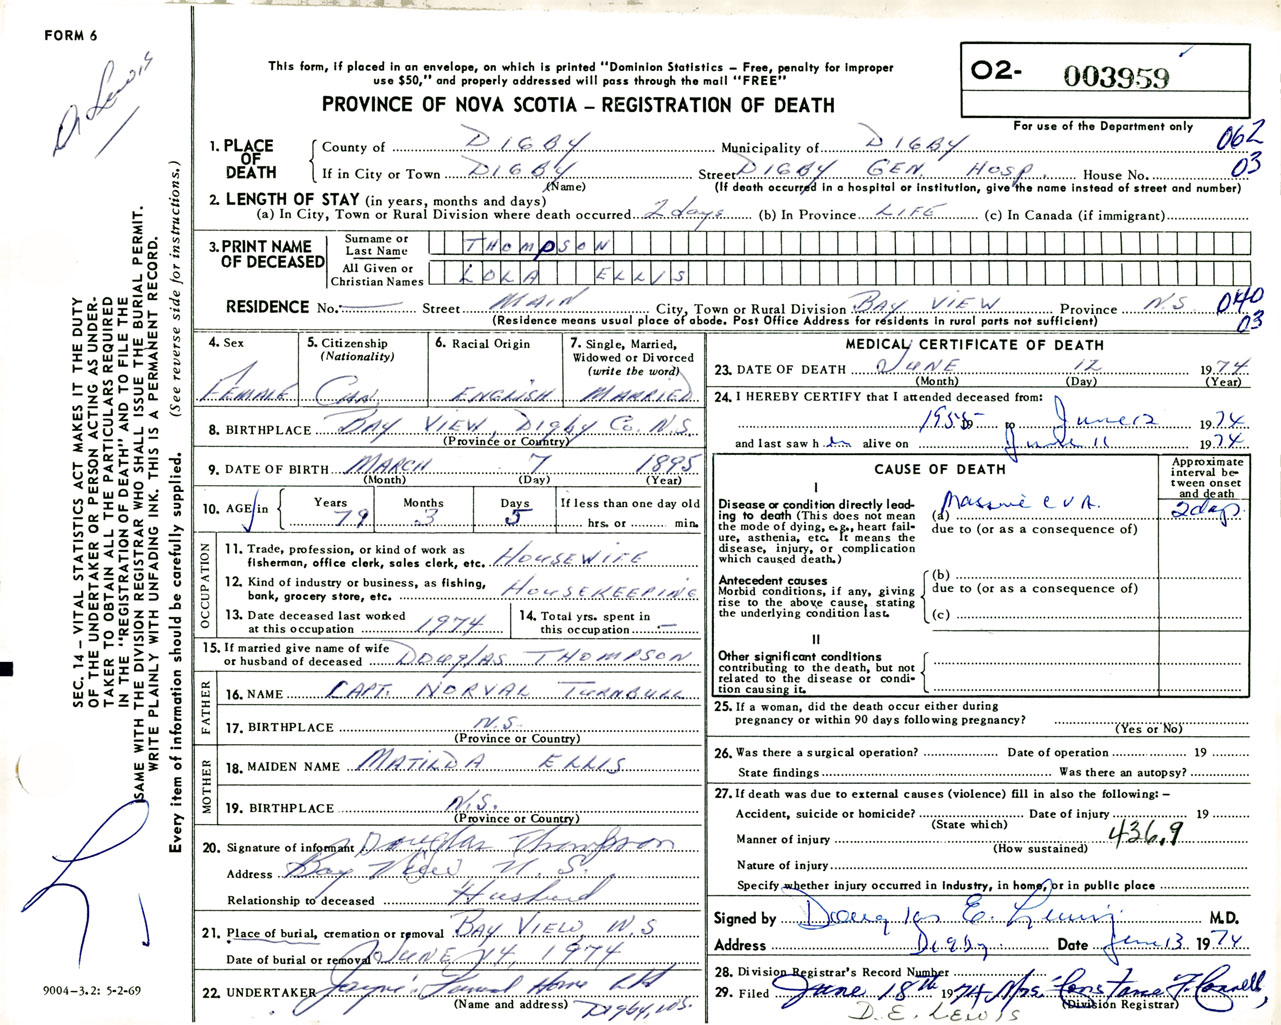 FORM 6
Dr Lewis
This form, if placed in an envelope, on which is printed "Dominion Statistics – Free, penalty for improper
use $50," and properly addressed will pass through the mail "FREE"
PROVINCE OF NOVA SCOTIA – REGISTRATION OF DEATH
O2- 003959
For use of the Department only
062
03
1. PLACE OF DEATH
County of DIGBY Municipality of DIGBY
If in City or Town DIGBY Street DIGBY GEN. HOSP. House No.
(Name) (If death occurred in a hospital or institution, give the name instead of street and number)
2. LENGTH OF STAY (in years, months and days)
(a) In City, Town or Rural Division where death occurred 2 days (b) In Province LIFE (c) In Canada (if immigrant)
3. PRINT NAME OF DECEASED
Surname or Last Name THOMPSON
All Given or Christian Names LOLA ELLIS
RESIDENCE No. — Street MAIN City, Town or Rural Division BAY VIEW Province N.S
(Residence means usual place of abode. Post Office Address for residents in rural parts not sufficient)
040
03
4. Sex FEMALE
5. Citizenship (Nationality) CAN.
6. Racial Origin ENGLISH
7. Single, Married, Widowed or Divorced (write the word) MARRIED
8. BIRTHPLACE BAY VIEW, DIGBY CO. N.S.
(Province or Country)
9. DATE OF BIRTH MARCH 7 1895
(Month) (Day) (Year)
10. AGE in Years 79 Months 3 Days 5 If less than one day old
hrs. or min.
OCCUPATION
11. Trade, profession, or kind of work as
fisherman, office clerk, sales clerk, etc. HOUSEWIFE
12. Kind of industry or business, as fishing,
bank, grocery store, etc. HOUSEKEEPING
13. Date deceased last worked
at this occupation 1974
14. Total yrs. spent in
this occupation —
15. If married give name of wife
or husband of deceased DOUGLAS THOMPSON
FATHER
16. NAME CAPT. NORVAL TURNBULL
17. BIRTHPLACE N.S.
(Province or Country)
MOTHER
18. MAIDEN NAME MATILDA ELLIS
19. BIRTHPLACE N.S.
(Province or Country)
20. Signature of informant Douglas Thompson
Address Bay View N.S.
Relationship to deceased Husband
21. Place of burial, cremation or removal BAY VIEW, N.S
Date of burial or removal JUNE 14, 1974
22. UNDERTAKER Funeral Home Ltd
(Name and address) Digby, N.S.
MEDICAL CERTIFICATE OF DEATH
23. DATE OF DEATH JUNE 12 1974
(Month) (Day) (Year)
24. I HEREBY CERTIFY that I attended deceased from:
1955 to June 12 1974
and last saw h er alive on June 11 1974
CAUSE OF DEATH
Approximate interval between onset and death
I
Disease or condition directly leading to death (This does not mean
the mode of dying, e.g., heart failure, asthenia, etc. It means the
disease, injury, or complication
which caused death.)
(a) Massive CVA. 2 days
due to (or as a consequence of)
Antecedent causes
Morbid conditions, if any, giving
rise to the above cause, stating
the underlying condition last.
(b)
due to (or as a consequence of)
(c)
II
Other significant conditions
contributing to the death, but not
related to the disease or condition causing it.
25. If a woman, did the death occur either during
pregnancy or within 90 days following pregnancy?
(Yes or No)
26. Was there a surgical operation? Date of operation 19
State findings Was there an autopsy?
27. If death was due to external causes (violence) fill in also the following: –
Accident, suicide or homicide? Date of injury 19
(State which)
Manner of injury 436.9
(How sustained)
Nature of injury
Specify whether injury occurred in industry, in home, or in public place
Signed by Douglas E. Lewis M.D.
Address Digby Date June 13 1974
28. Division Registrar's Record Number
29. Filed June 18th 1974 Mrs. Constance F. Connell
(Division Registrar)
D. E. LEWIS
SEC. 14 – VITAL STATISTICS ACT MAKES IT THE DUTY
OF THE UNDERTAKER OR PERSON ACTING AS UNDERTAKER TO OBTAIN ALL THE PARTICULARS REQUIRED
IN THE "REGISTRATION OF DEATH" AND TO FILE THE
SAME WITH THE DIVISION REGISTRAR WHO SHALL ISSUE THE BURIAL PERMIT.
WRITE PLAINLY WITH UNFADING INK. THIS IS A PERMANENT RECORD.
Every item of information should be carefully supplied. (See reverse side for instructions.)
9004-3.2: 5-2-69